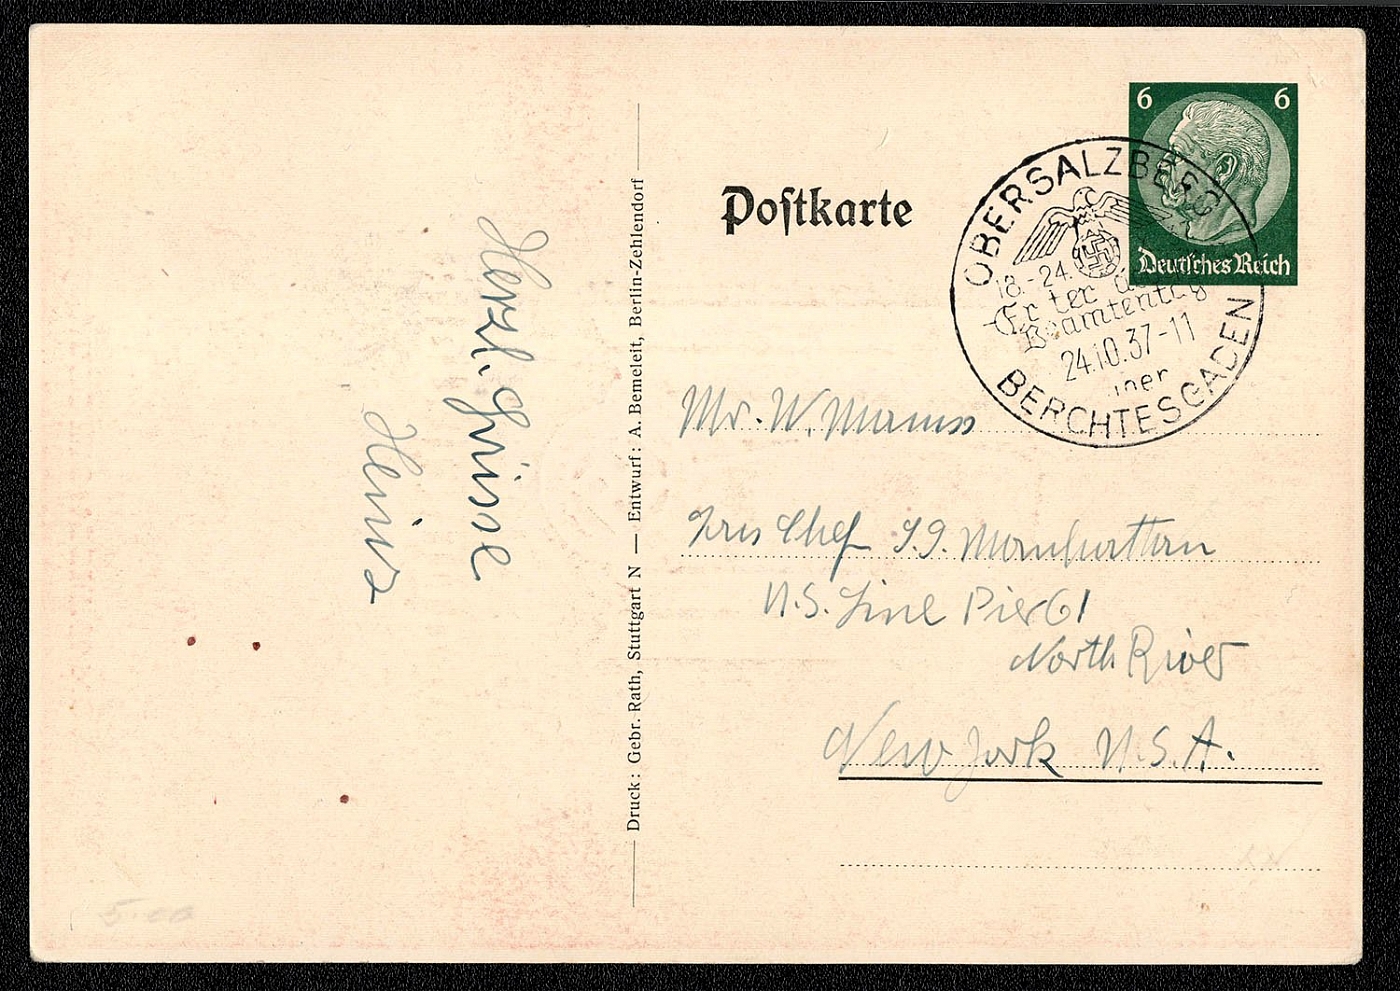 Postkarte
6 6
Deutsches Reich
OBERSALZBERG
18.-24.
Beamtentag
24.10.37-11
BERCHTESGADEN
Herzl. Grüsse
Heinz
Druck: Gebr. Rath, Stuttgart N — Entwurf: A. Bemeleit, Berlin-Zehlendorf
Mr. W.
Chef S.S. Manhattan
U.S. Line Pier 61
North River
New York U.S.A.
5.00